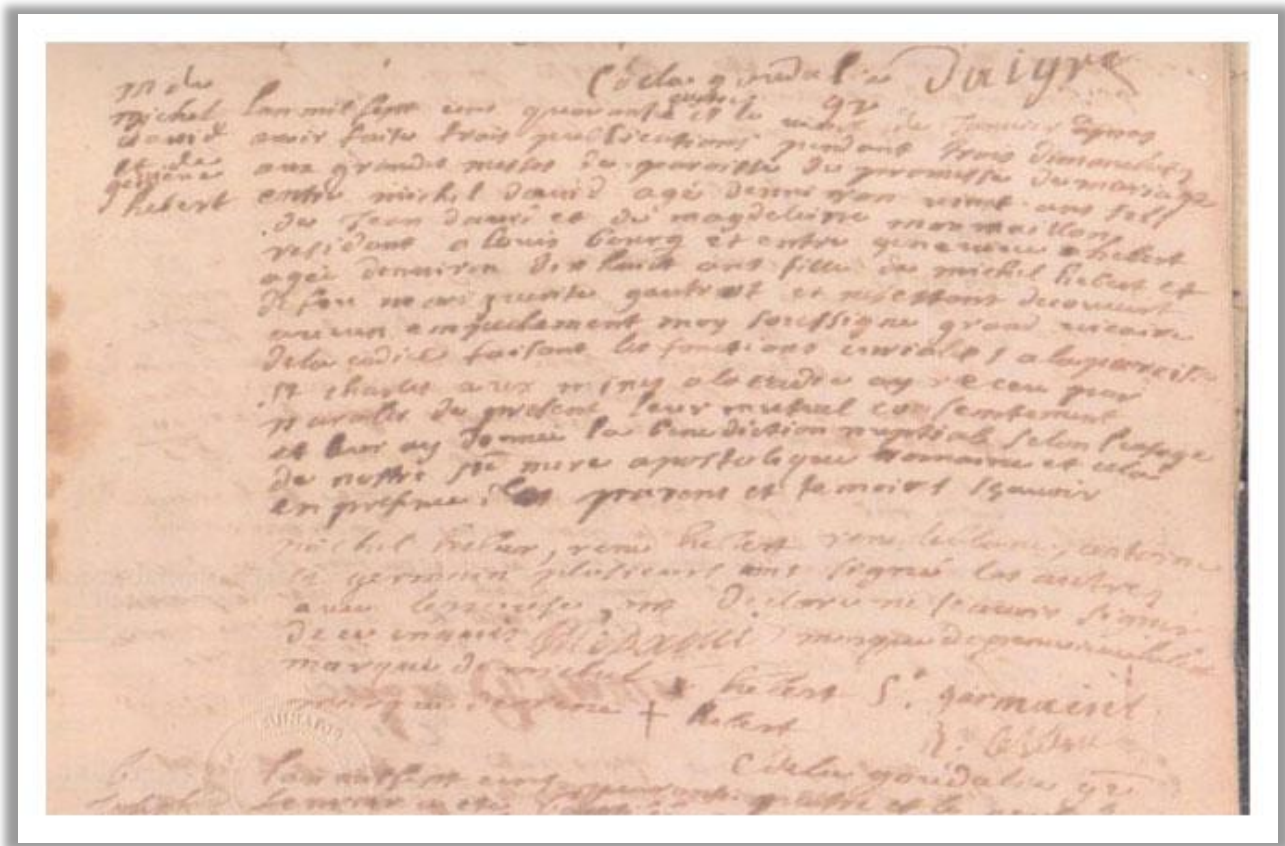 C de la goudalie Daigre
M de
michel
david
et de
genevive
hebert
Lan mil sept cent quarante et le vint de Janvier apres
avoir faite trois publications pendant trois dimanches
aux grandes messes de paroisse de promesse de mariage
entre michel david agé denviron vint ans fils
de Jean david et de magdeleine
residant a louis bourg et entre genevieve hebert
agée denviron dix huit ans fille de michel hebert et
de feu marguerite gautrot et decouvert
aucun moy soussigne grand vicaire
de la cadie faisant les fonctions curiales a la paroisse
st charles aux mines a la cadie ay receu par
paroles de present leur mutuel consentement
et leur ay donné la benediction nuptiale selon lusage
de nostre ste mere apostolique romaine et cela
en presence des parent et temoins scavoir
michel rené hebert rené leblanc, antoine
st germain plusieurs ont signé les autres
avec ont declare ne scavoir signer
de ce enquis marque de
marque de michel x hebert St. germain
marque + hebert
R. leblanc
C de la goudalie gv
Lan mil sept cent quarante quatre et le